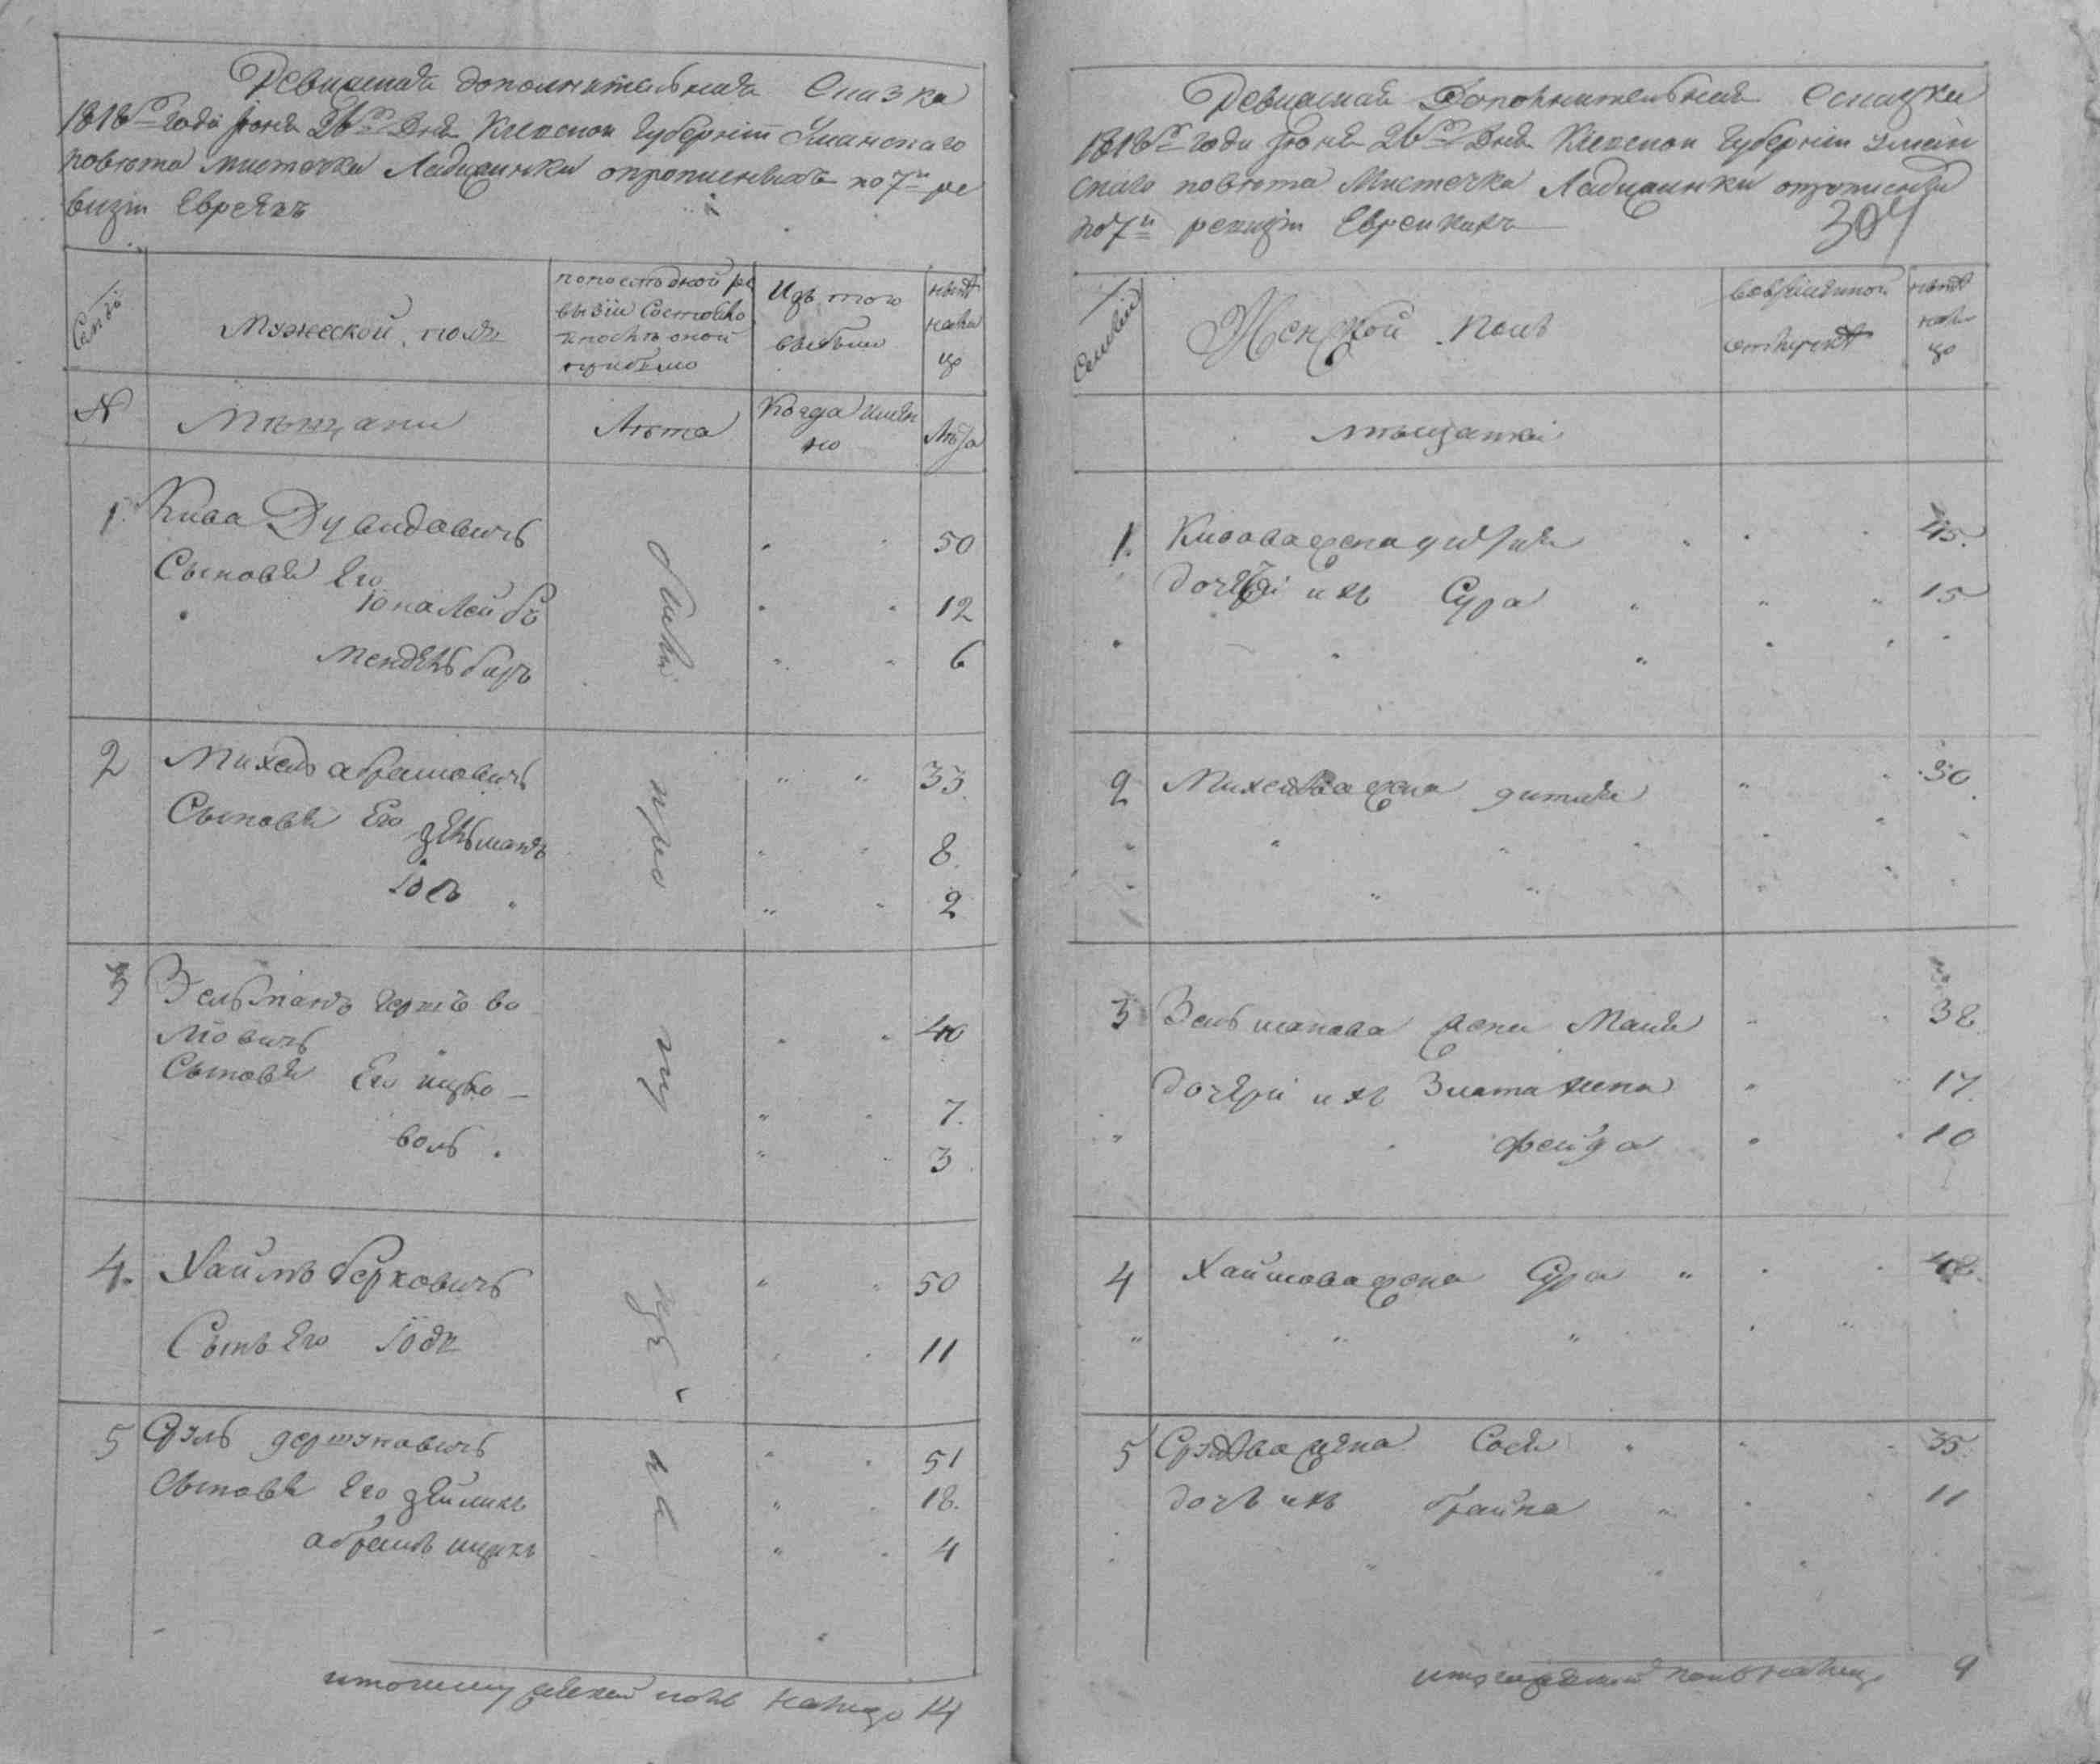 Ревизская дополнительная Сказка
1818го года Июня 26го Дня Киевской Губернiи Уманскаго
повѣта мистечка Ладижинки опрописныхъ по 7й ре
визiи Евреяхъ
Семьи
Мужеской полъ
по последной ре
визiи Состояло
и после оной
прибыло
Изъ того
выбыло
ныне
на ли
цо
№
Мѣщани
Лѣта
Когда имян
но
Лѣта
1. Кива Дувидовичъ 50
Сыновя Его
Юна Лейбъ 12
Мендель беръ 6
2 Михель абрамовичъ 33
Сыновя Его Зельманъ 8
Iось 2
3 Зельманъ гершъ во
лiовичъ 40
Сыновя Его ицко 7.
воль 3
4. Хаимъ берковичъ 50
Сынъ Его Iодк 11
5 Сруль гершковичъ 51
Сыновя Его Зейликъ 18.
абрамъ ицикъ 4
были
про
пу
ще
ны
итого мужеской полъ налицо 14
Ревизская Дополнительная Сказка
1818го года Июня 26го Дня Киевской Губернiи Уман
скаго повѣта Мистечка Ладижинки опрописных
по 7й ревизiи Еврейкахъ
304
Семьи
Женской полъ
во временной
отлучке
ныне
нали
цо
мѣщанки
1. Кивова жена 45.
дочери ихъ Сура 15
2 Михелева жена 30
3 Зельманова жена Маня 38
дочери ихъ Злата хена 17.
фейга 10
4 Хаимова жена Сура 48
5 Срулева жена Сося 35
дочь ихъ брайна 11
итого женской полъ налицо 9